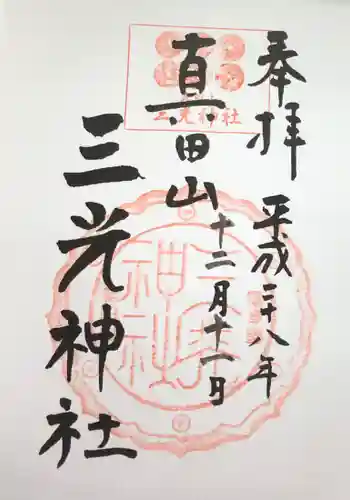 奉拝
平成二十八年
十二月十一日
真田山
三光神社
三光神社
三光神社